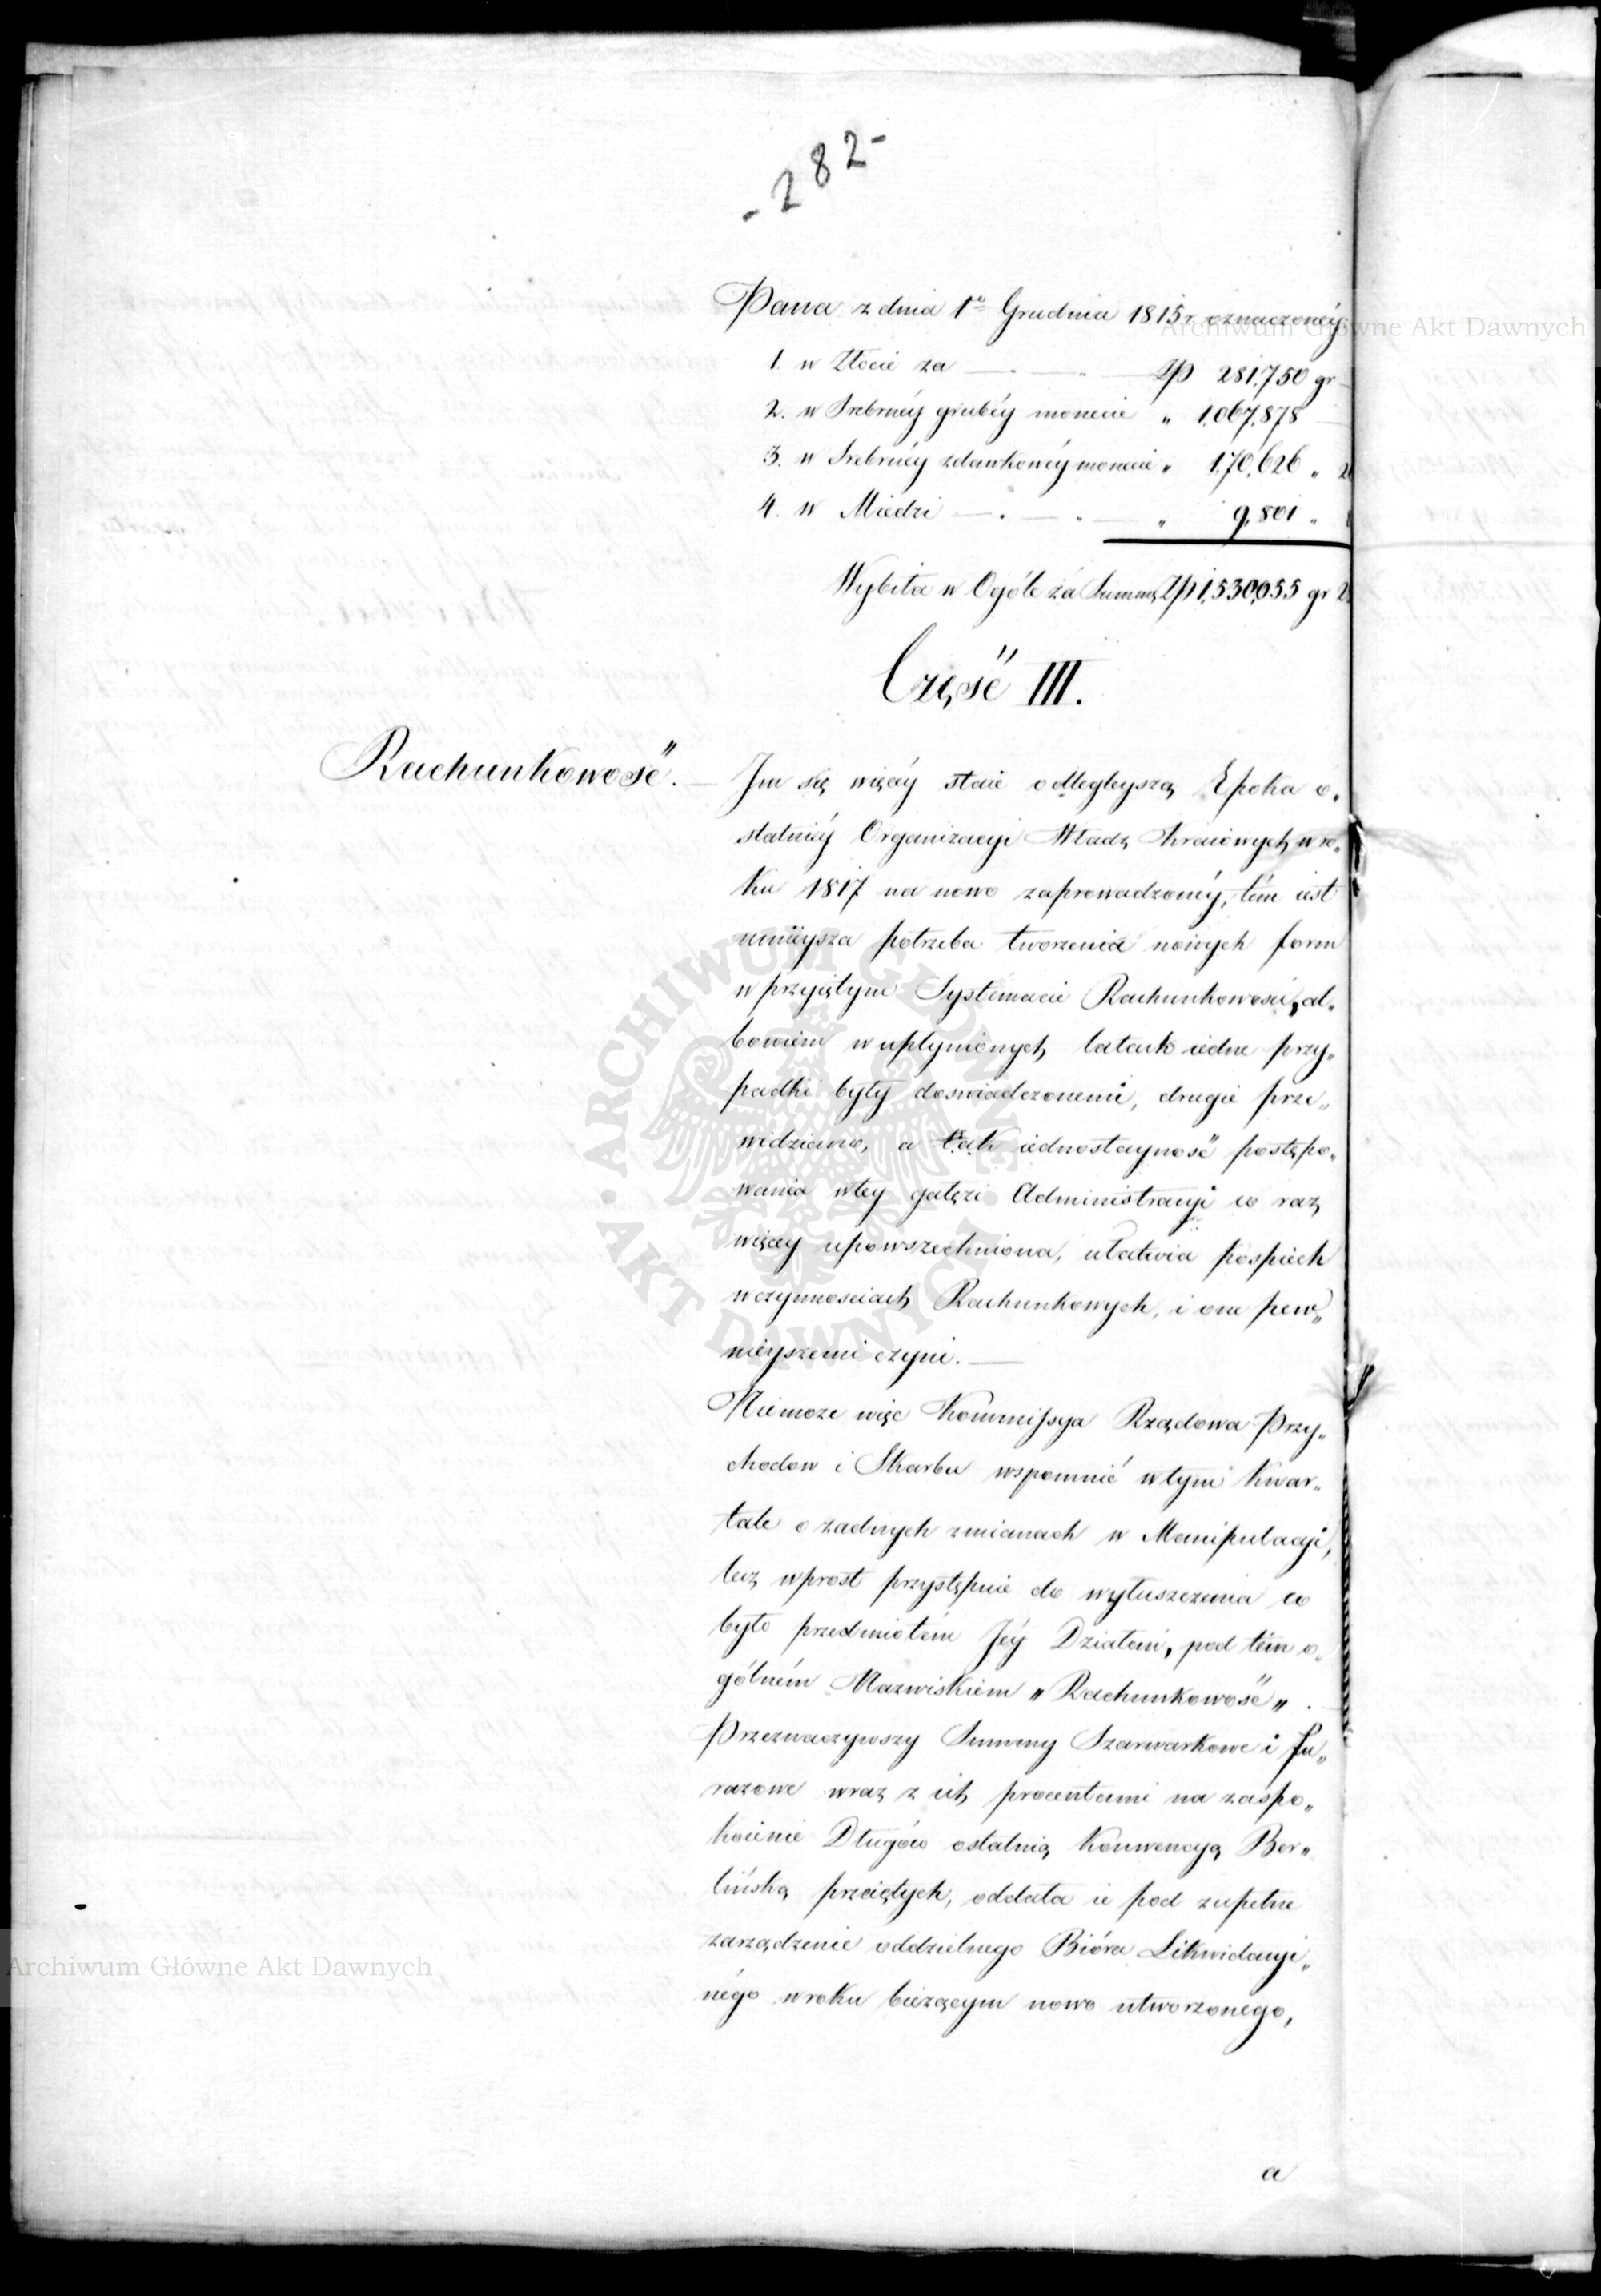 - 282 -
Pana z dnia 1º Grudnia 1815 r. oznaczonéy.
1. w Złocie za — " — Złp 281,750 gr —
2. w Srebrnéy grubéy monecie " 1,067,878 —
3. w Srebrnéy zdawkowéy monecie " 170,626 " 2
4. w Miedzi — " — " — " 9,801 "
Wybita w Ogóle za Summę Złp 1,530,055 gr 2
Część III.
Rachunkowość. —
Im się więcéy staie odległeyszą Epoka o„
statniéy Organizacyi Władz Kraiowych, w ro„
ku 1817 na nowo zaprowadzonéy, tém iest
mnieysza potrzeba tworzenia nowych form
w przyiętym Systemacie Rachunkowości, al„
bowiem w upłynionych latach iedne przy„
padki były doswiadczonemi, drugie prze„
widziano, a tak iednostayność postępo„
wania w tey gałęzi Administracyi co raz
więcey upowszechniona, ułatwia pośpiech
w czynnosciach Rachunkowych, i one pew„
nieyszemi czyni. —
Niemoze więc Kommissya Rządowa Przy„
chodow i Skarbu wspomnić w tym Kwar„
tale o zadnych zmianach w Manipulacyi,
lecz wprost przystępuie do wyłuszczenia co
było przedmiotém Jéy Działań, pod tém o„
gólném Nazwiskiem „ Rachunkowość „ .
Przeznaczywszy Summy Szarwarkowe i Fu„
razowe wraz z ich procentami na zaspo„
koienie Długów ostatnią Konwencyą Ber„
lińską przeiętych, oddała ie pod zupełne
zarządzenie oddzielnego Bióra Likwidacyi„
nego w roku bieżącym nowo utworzonego,
a
Archiwum Główne Akt Dawnych
Archiwum Główne Akt Dawnych
ARCHIWUM GŁÓWNE AKT DAWNYCH